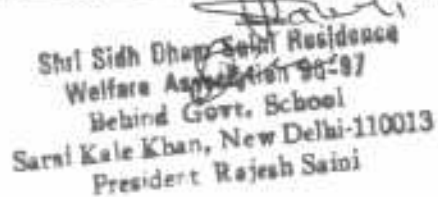 Shri Sidh Dham Saini Residence
Welfare Association 96-97
Behind Govt. School
Sarai Kale Khan, New Delhi-110013
President Rajesh Saini